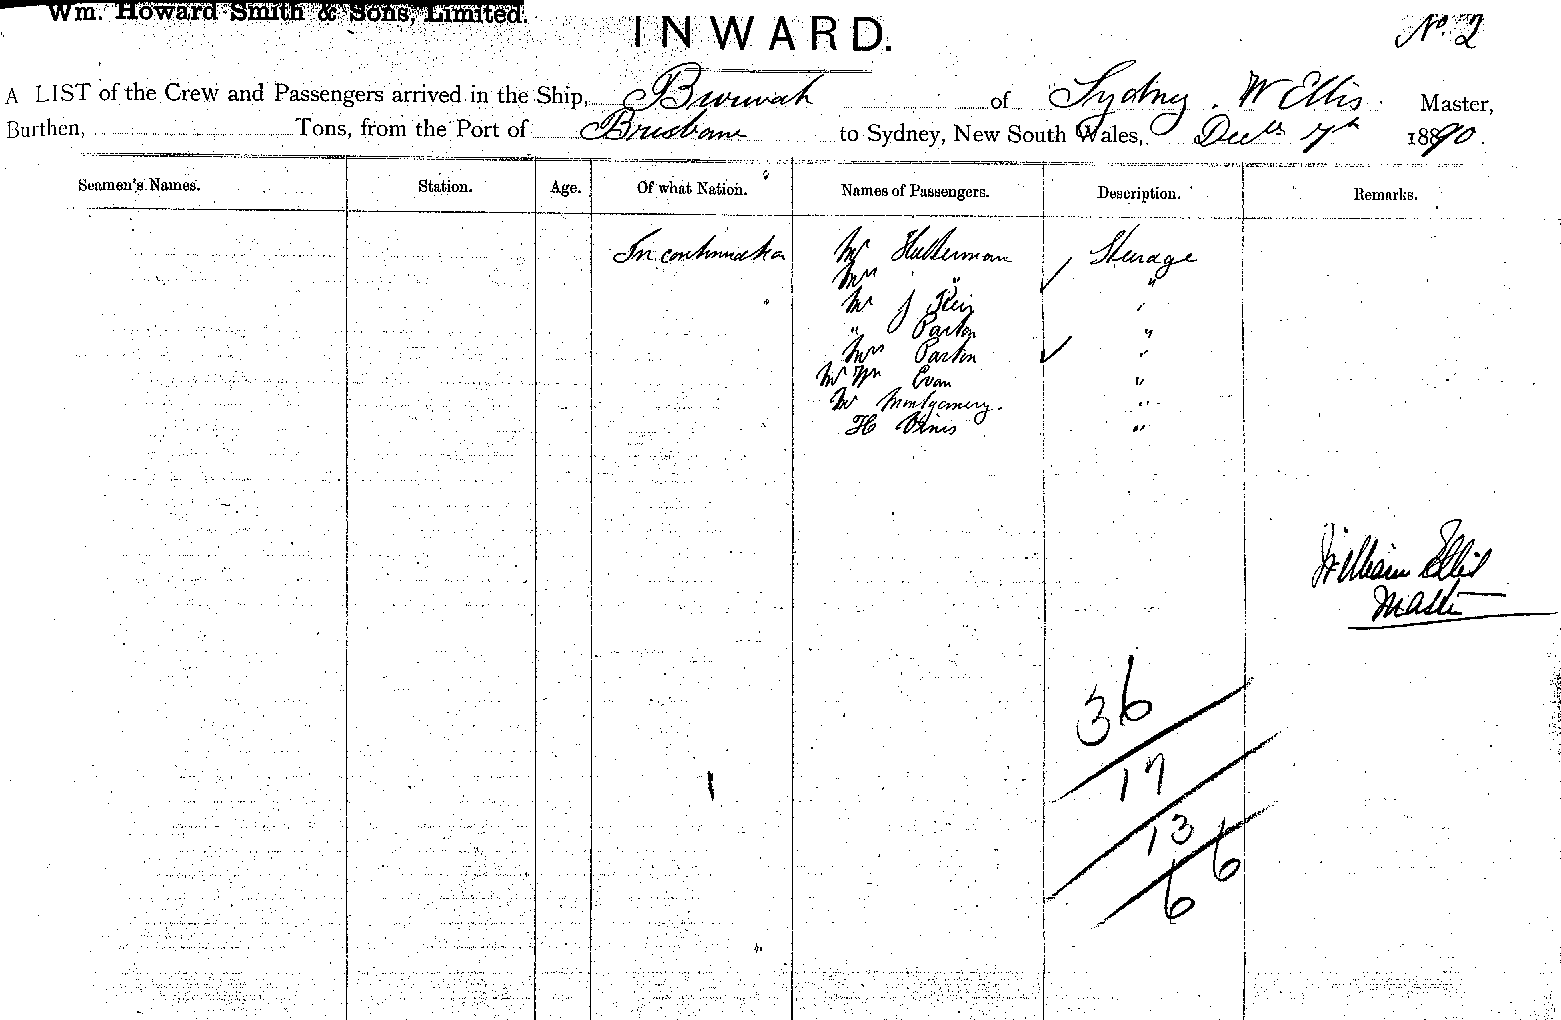 Wm. Howard Smith & Sons, Limited.
INWARD.
No. 2
A LIST of the Crew and Passengers arrived in the Ship, of Sydney. W Ellis. Master,
Burthen, Tons, from the Port of Brisbane to Sydney, New South Wales, Decr 7th 1890.
Seamen's Names. Station. Age. Of what Nation. Names of Passengers. Description. Remarks.
In continuation Mr Steerage
Mrs " "
Mr J "
" "
Mrs "
Mr Wm Evan "
Mr Montgomery. "
H "
William Ellis
Master
36
17
13
6 6